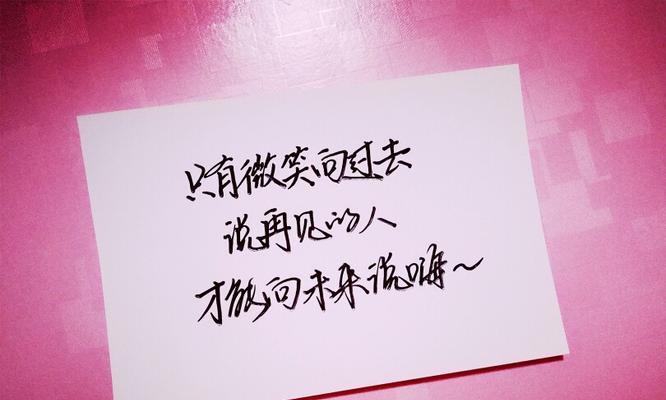 只有微笑向过去
说再见的人
才能向未来说嗨~